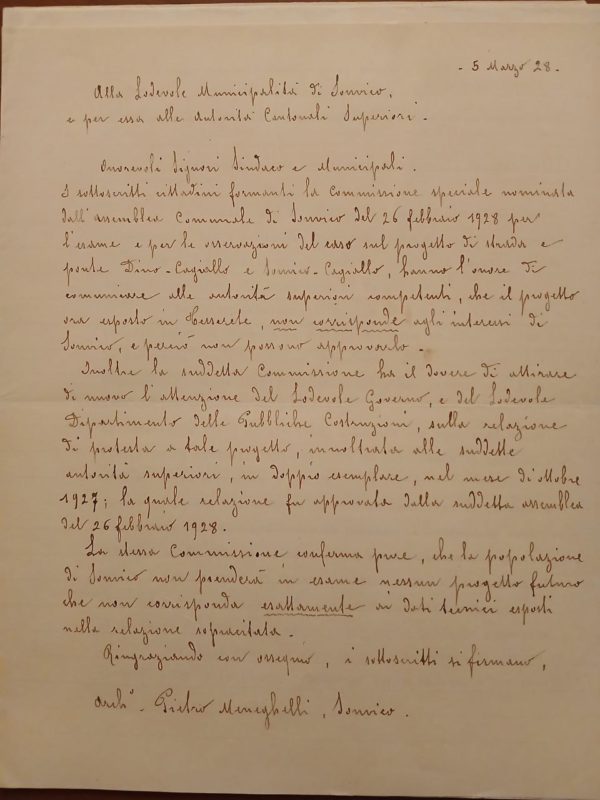 - 5 Marzo 28 -
Alla Lodevole Municipalità di Sonvico,
e per essa alle Autorità Cantonali Superiori -
Onorevoli Signori Sindaco e Municipali.
I sottoscritti cittadini formanti la Commissione speciale nominata
dall'assemblea Comunale di Sonvico del 26 febbraio 1928 per
l'esame e per le osservazioni del caso sul progetto di strada e
ponte Dino-Cagiallo e Sonvico-Cagiallo, hanno l'onore di
comunicare alle autorità superiori competenti, che il progetto
ora esposto in Tesserete, non corrisponde agli interessi di
Sonvico, e perciò non possono approvarlo -
Inoltre la suddetta Commissione ha il dovere di attirare
di nuovo l'attenzione del Lodevole Governo, e del Lodevole
Dipartimento delle Pubbliche Costruzioni, sulla relazione
di protesta a tale progetto, innoltrata alle suddette
autorità superiori, in doppio esemplare, nel mese di ottobre
1927; la quale relazione fu approvata dalla suddetta assemblea
del 26 febbraio 1928.
La stessa Commissione conferma pure, che la popolazione
di Sonvico non prenderà in esame nessun progetto futuro
che non corrisponda esattamente ai dati tecnici esposti
nella relazione sopracitata -
Ringraziando con ossequio, i sottoscritti si firmano,
Archº - Pietro Meneghelli, Sonvico.